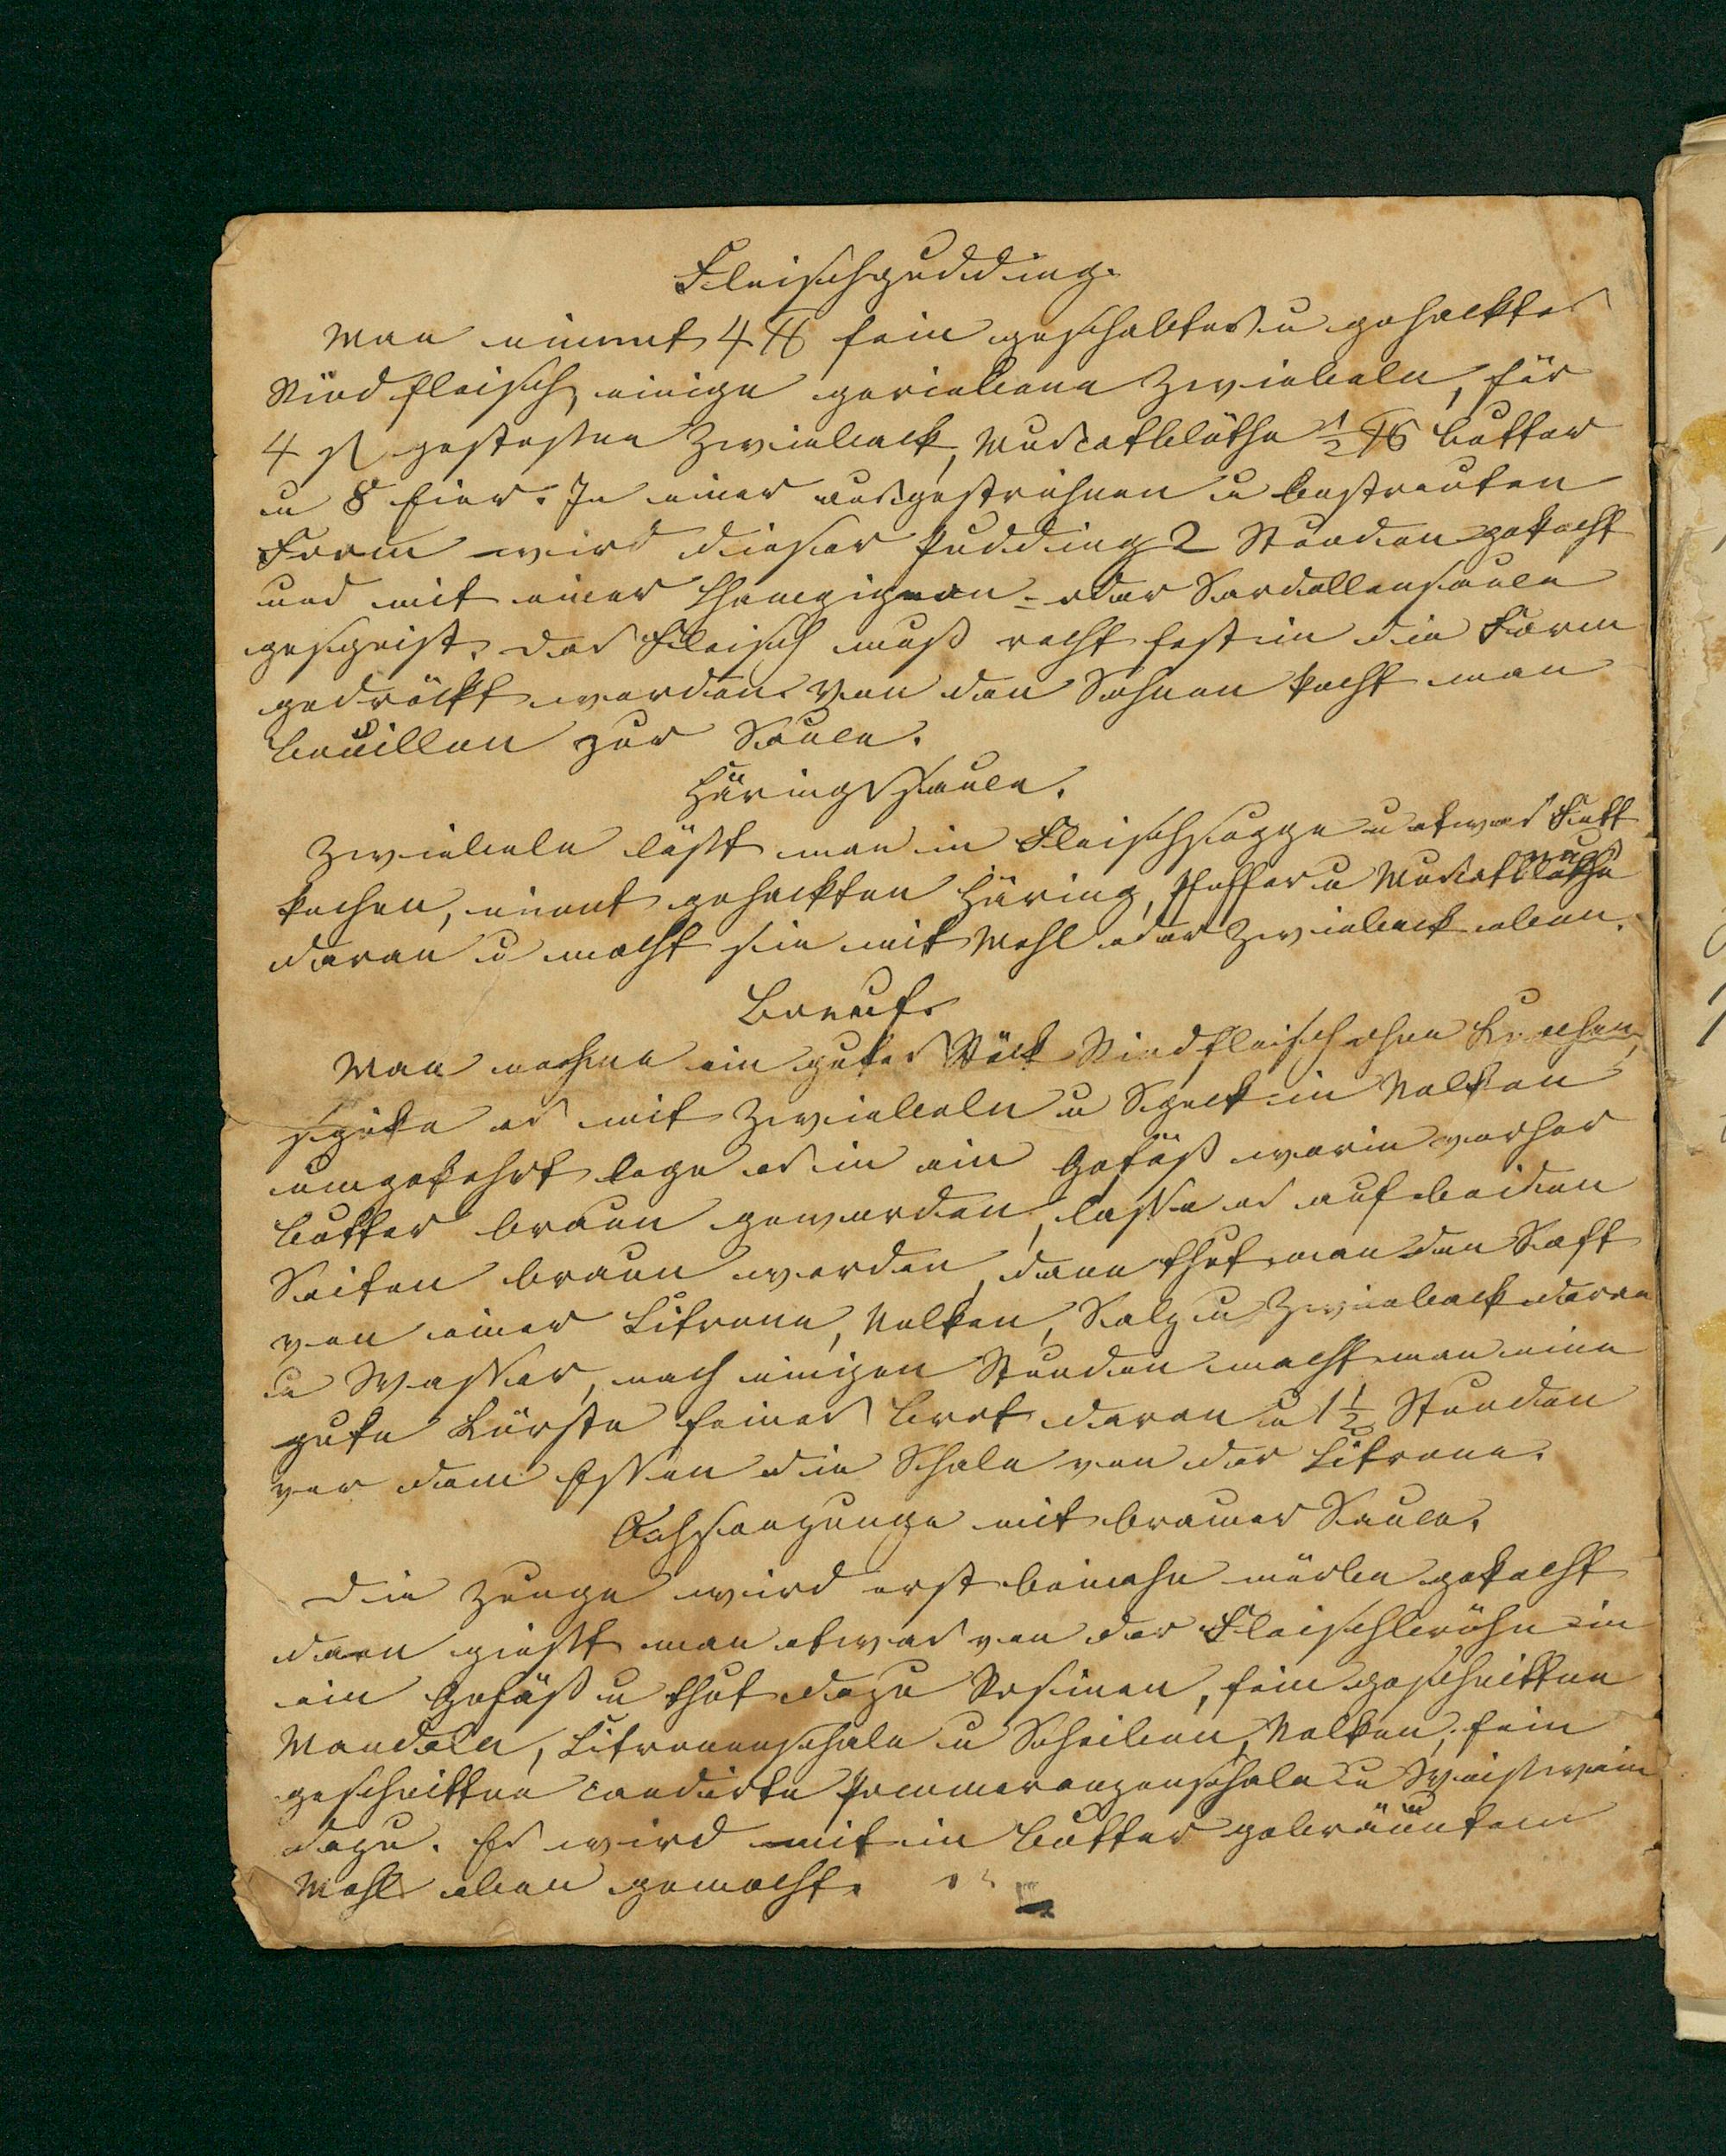 Fleischpudding.
Man nimmt 4 ℔ fein geschabtes u gehacktes
Rindfleisch, einige geriebene Zwiebeln, für
4 ßl gestoßnen Zwieback, Muscatblüthe ½ ℔ Butter
u 8 Eier. In einer ausgestrichnen u bestreuten
Form wird dieser Pudding 2 Stunden gekocht
und mit einer Champignon- oder Sardellensauce
gespeist. Das Fleisch muß recht fest in die Form
gedrückt werden. Von den Sehnen kocht man
Bouillon zur Sauce.
Häringssauce.
Zwiebeln läßt man in Fleischsuppe u etwas Fett
kochen, nimt gehackten Häring, Pfeffer u Muscatblüthe
nuß
daran u macht sie mit Mehl oder Zwieback eben.
Boeuf.
Man nehme ein gutes Stück Rindfleisch ohne Knochen,
spicke es mit Zwiebeln u Speck in Nelken
umgekehrt lege es in ein Gefäß worin vorher
Butter braun geworden, lasse es auf beiden
Seiten braun werden, dann thut man den Saft
von einer Citrone, Nelken, Salz u Zwieback daran
u Wasser, nach einigen Stunden macht man eine
gute Kürste feines Brot daran u 1½ Stunden
vor dem Essen die Schale von der Citrone.
Ochsenzunge mit brauner Sauce.
Die Zunge wird erst beinahe mürbe gekocht
dann gießt man etwas von der Fleischbrühe in
ein Gefäß u thut dazu Rosinen, fein geschnittne
Mandeln, Citronenschale u Scheiben, Nelken, fein
geschnittne candirte Pommeranzenschale u Weißwein
dazu. Es wird mit in Butter gebräuntem
Mehl eben gemacht.